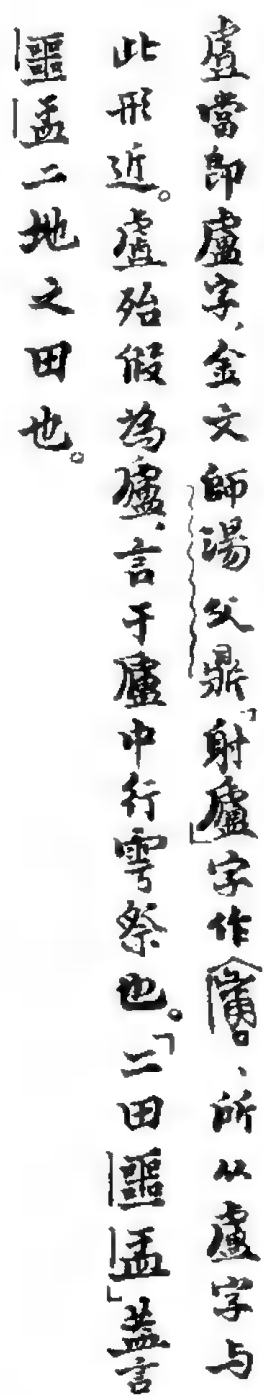 盧當即盧字，金文師湯父鼎「射盧」字作、所从盧字与
此形近。盧殆假為廬，言于廬中行雩祭也。「二田噩盂」蓋言
噩盂二地之田也。